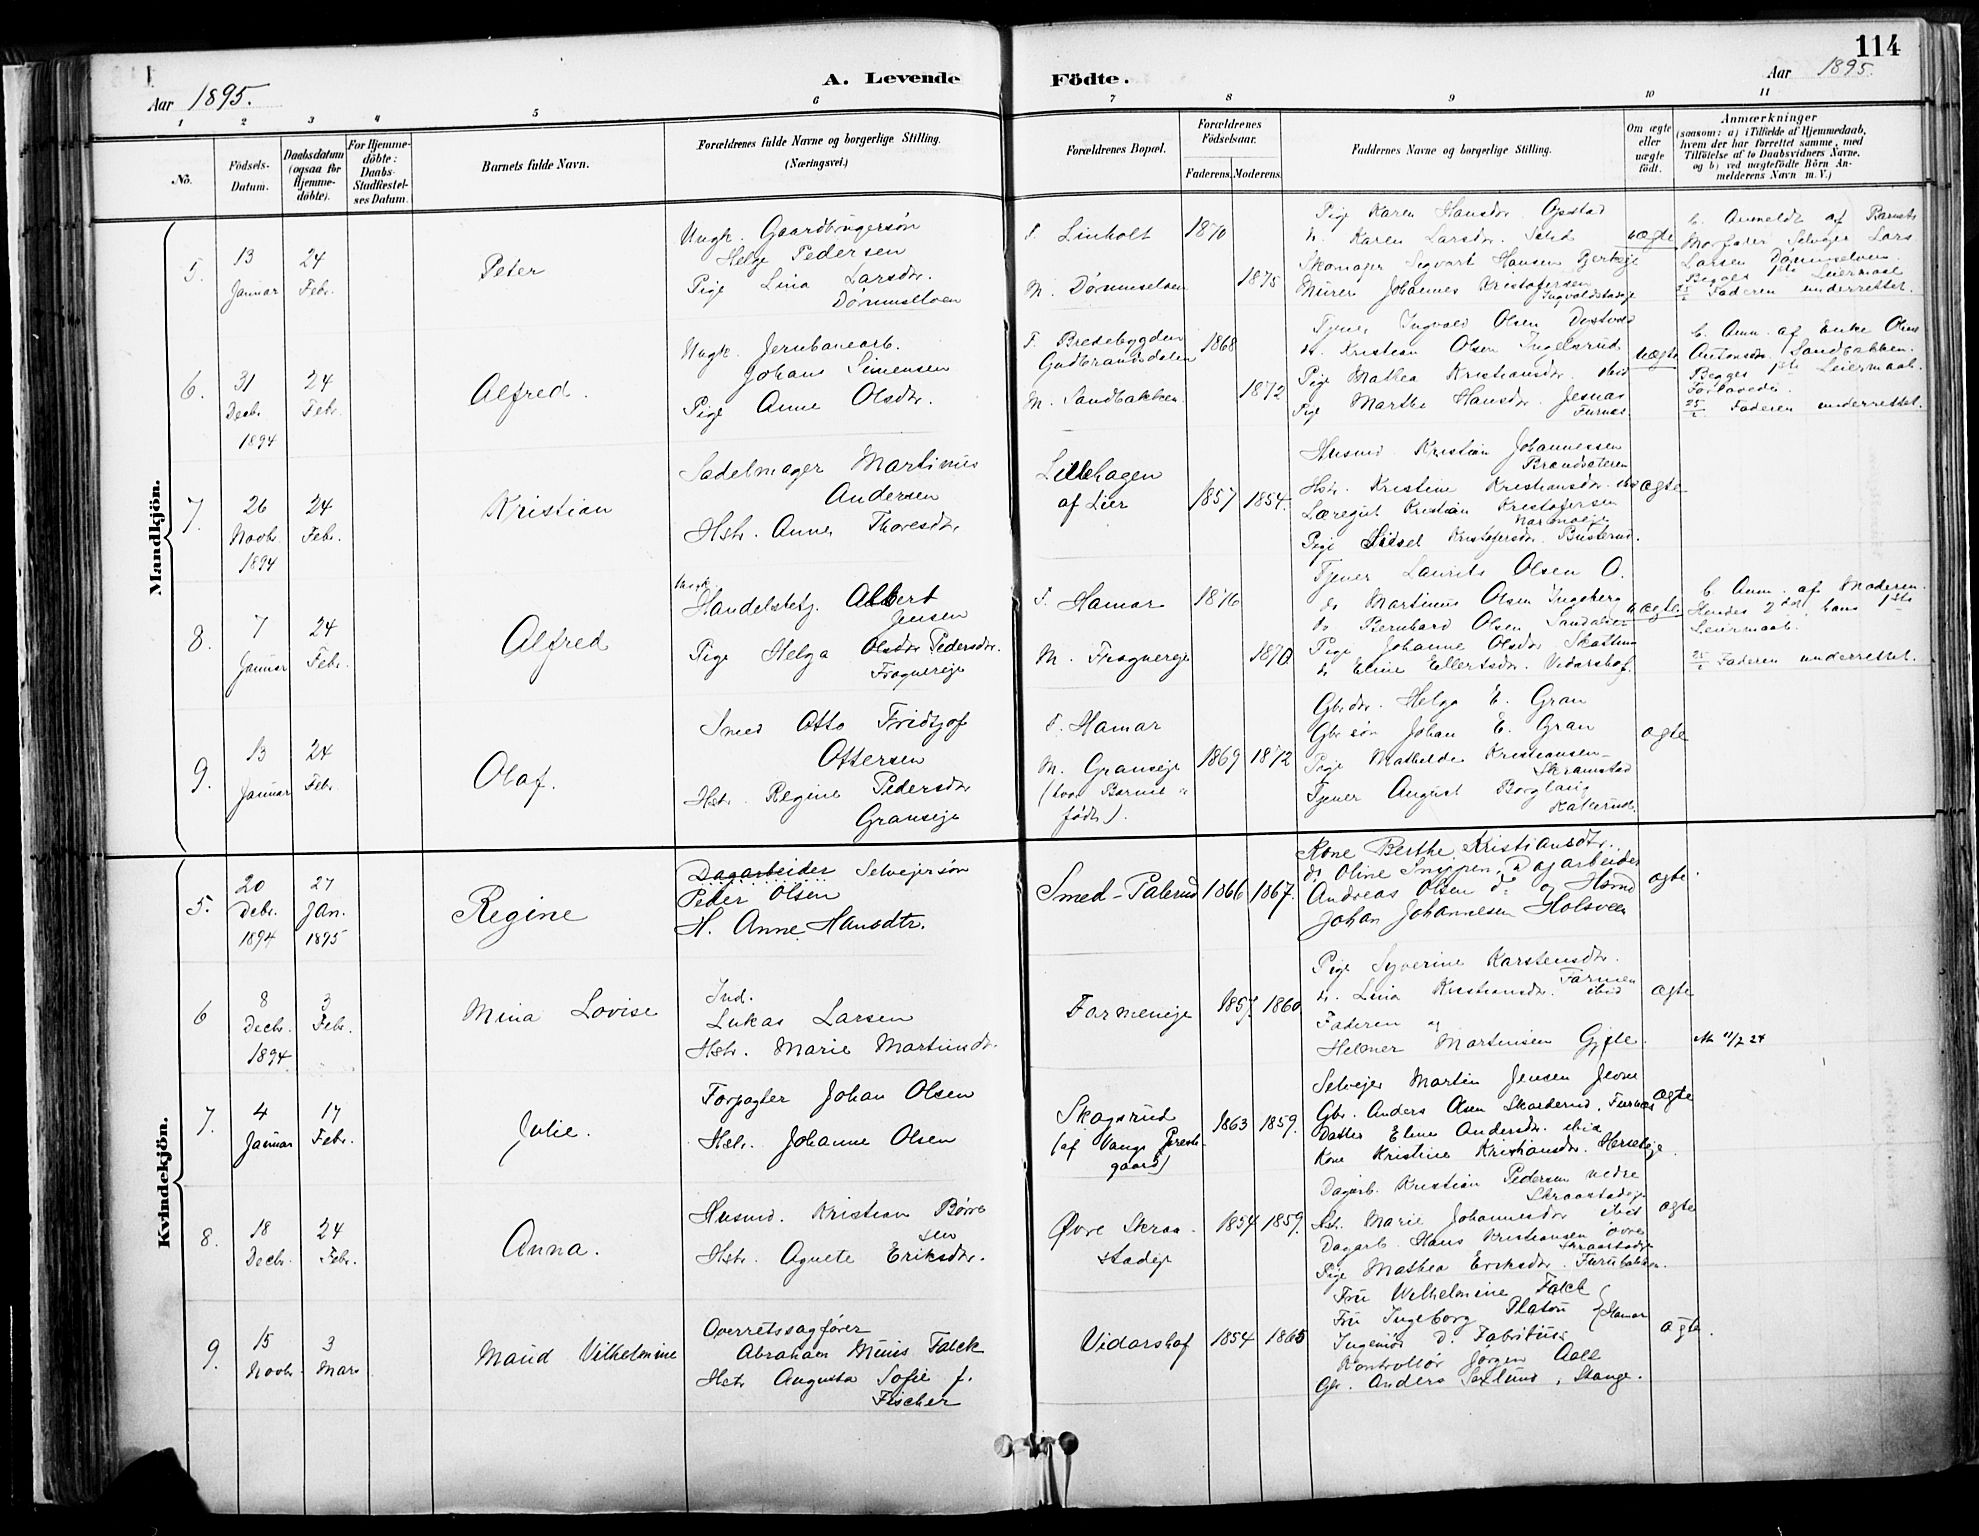 114
Aar 1895.
A. Levende Födte.
Aar 1895.
1 2 3 4 5 6 7 8 9 10 11
No.
Födsels-Datum.
Daabsdatum (ogsaa for Hjemme-döbte).
For Hjemme-döbte: Daabs-Stadfæstel-ses Datum.
Barnets fulde Navn.
Forældrenes fulde Navne og borgerlige Stilling.
(Næringsvei.)
Forældrenes Bopæl.
Forældrenes Födselsaar.
Faderens. Moderens.
Faddernes Navne og borgerlige Stilling.
Om ægte eller uægte födt.
Anmærkninger
(saasom: a) i Tilfælde af Hjemmedaab,
hvem der har forrettet samme, med
Tilföielse af to Daabsvidners Navne,
og b) ved uægtefödte Börn An-
melderens Navn m. V.)
Mandkjön.
5. 13 Januar 24 Febr. Peter
Ungk. Gaardbrugersøn
Helge Pedersen
Pige Lina Larsdr.
Dømmselven
F. Linholt 1870
M. Dømmselven 1875
Pige Karen Hansdr. Opstad
d. Karen Larsdr.
Skomager Sigvart Hansen
Murer Johannes Kristofersen
uægte
b. Anmeldt af Barnets
Morfader Selvejer Lars
Larsen Dømmselven
Begges 1ste Leiermaal
Faderen underrettet.
6. 31 Decbr. 1894 24 Febr. Alfred.
Ungk. Jernbanearb.
Johans Simensen
Pige Anne Olsdr.
F. Bredebygden
Gudbrandsdalen 1868
M. Sandbakken 1872
Tjener Ingvald Olsen
d. Kristian Olsen Ingelsrud
Pige Mathea Kristiansdr. ibid
Pige Marthe Hansdr. Jesnæs
Furnæs.
uægte
b. Anm. af Enke Oline
Antonsdr. Sandbakken.
Begges 1ste Leiermaal.
25/2 Faderen underrettet.
7. 26 Novbr. 1894 24 Febr. Kristian
Sadelmager Martinus
Andersen
Hstr. Anne Thoresdr.
Lillehagen
af Lier 1857 1854.
Husmd. Kristian Johannessen
Brandsæteren
Hstr. Kristine Kristiansdr. ibid
Læregut Kristian Kristofersen
Pige Sidsel Kristofersdr. Busterud.
ægte
8. 7 Januar 24 Febr. Alfred
Ungk.
Handelsbetj. Albert
Jensen
Pige Helga Olsdr. Pedersdr.
Frognereje
F. Hamar 1876
M. Frognereje 1870
Tjener Laurits Olsen O.
do Martinus Olsen Ingeberg
do Bernhard Olsen Sandalen
Pige Johanne Olsdr. Skattum
d. Eline Ellertsdr. Vidarshof.
uægte
b. Anm. af Moderen.
Hendes 2den hans 1ste
Leiermaal.
25/2 Faderen underrettet.
9. 13 Januar 24 Febr. Olaf.
Smed Otto Fridtjof
Ottersen
Hstr. Regine Pedersdr
Granseje
F. Hamar
M. Granseje 1869 1872
(hvor Barnet er
født).
Gbrdr. Helga E. Gran
Gbr søn Johan E. Gran
Pige Mathilde Kristiansen
Skramstad
Tjener August Borglang
ægte
Kvindekjön.
5. 20 Debr. 1894 27 Jan. 1895 Regine
Dagarbeider Selvejersøn
Peder Olsen
H. Anne Hansdtr.
Smed-Palerud 1866 1867.
Kone Berthe Kristiansdtr.
do Oline Snippen, Dagarbeider
Andreas Olsen do og Hsmd
Johan Johannesen Holsveen
ægte.
6 8 Decbr. 1894. 3 Febr. Mina Lovise
Ind.
Lukas Larsen
Hstr. Marie Martinsdr.
Farmeneje 1857. 1860
Pige Syverine Karstensdr.
Farmen
d. Lina Kristiansdr. ibid
Faderen og
Helmer Martinsen Gjetle.
ægte
7. 4 Januar 17 Febr. Julie.
Forpagter Johan Olsen
Hstr. Johanne Olsen
Skogsrud
(af Vangs Præste-
gaard) 1863 1859.
Selvejer Martin Jensen Jevne
Gbr. Anders Olsen Skarderud, Furnæs
Datter Eline Andersdr. ibid
Kone Kristine Kristiansdr.
ægte
8. 18 Decbr. 24 Febr. Anna.
Husmd. Kristian Børre
sen
Hstr. Agnete Eriksdr.
Øvre Skraa-
stadeje 1854 1859.
Dagarb. Kristian Pedersen nedre
Skraastadeje
Hstr. Marie Johannesdr ibid
Dagarb. Hans Kristiansen øvre
Skraastadeje
Pige Mathea Eriksdr. Furubakken.
ægte
9. 15 Novbr. 3 Mars Maud Vilhelmine
Overretssagfører
Abraham Munis Falck
Hstr Augusta Sofie f.
Fischer
Vidarshof 1854 1865
Fru Wilhelmine Falck
Fru Ingeborg Platou } Hamar
Ingeniør D. Fabritius
Kontrollør Jørgen Aall
Gbr. Anders Sælund, Stange.
ægte.